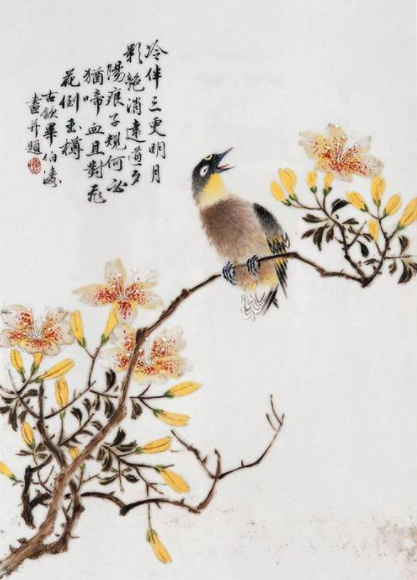 冷伴三更明月
影艷消遠道夕
陽痕子規何必
猶啼血且對飛
花倒玉樽
古歙畢伯濤
畫并題